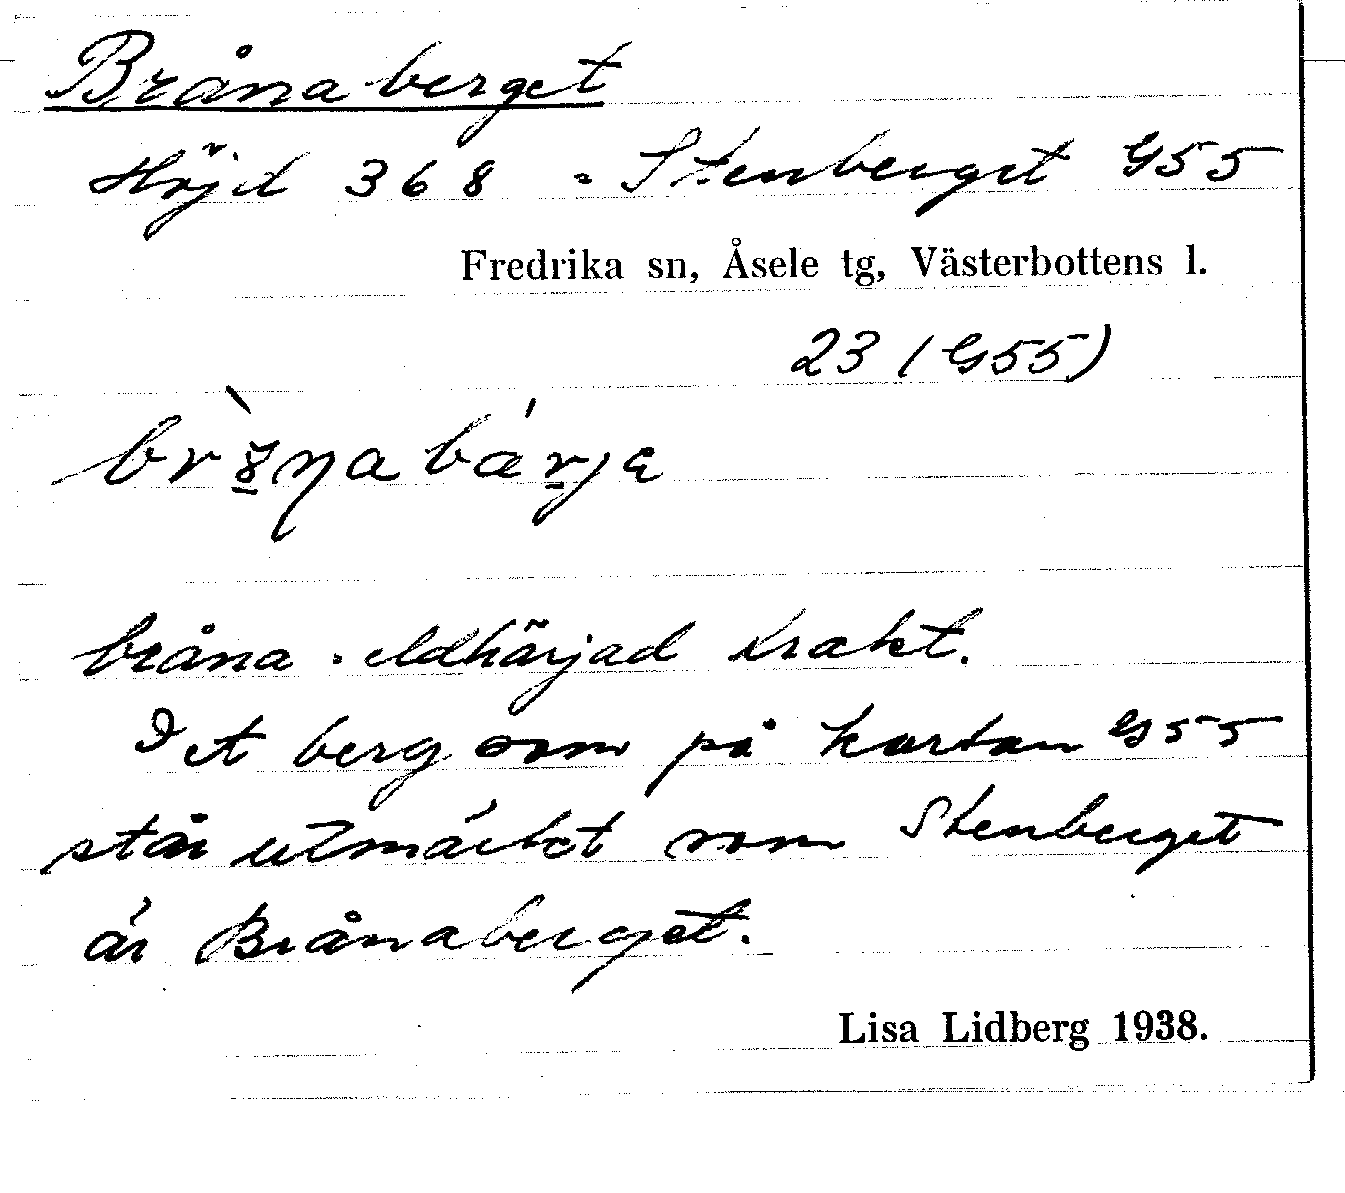 Brånaberget
Höjd 368 = Stenberget G55
Fredrika sn, Åsele tg, Västerbottens l.
23 (G55)
bråna = eldhärjad trakt.
Det berg som på kartan G55
står utmärket som Stenberget
är Brånaberget.
Lisa Lidberg 1938.